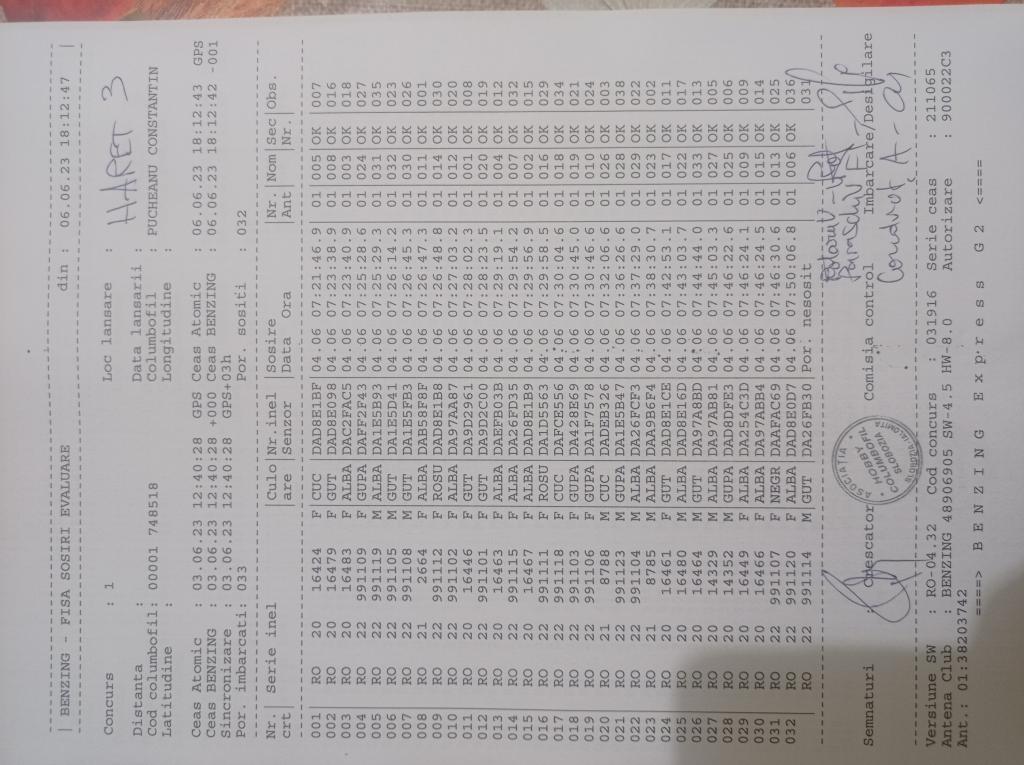 | BENZING - FISA SOSIRI EVALUARE din : 06.06.23 18:12:47 |
Concurs : 1 Loc lansare : HARET 3
Distanta : Data lansarii :
Cod columbofil: 00001 748518 Columbofil : PUCHEANU CONSTANTIN
Latitudine : Longitudine :
Ceas Atomic : 03.06.23 12:40:28 GPS Ceas Atomic : 06.06.23 18:12:43 GPS
Ceas BENZING : 03.06.23 12:40:28 +000 Ceas BENZING : 06.06.23 18:12:42 -001
Sincronizare : 03.06.23 12:40:28 GPS+03h
Por. imbarcati: 033 Por. sositi : 032
Nr. |Serie inel |Culo|Nr.inel |Sosire |Nr |Nom|Sec|Obs.
crt| |are |Senzor |Data Ora |Ant| |Nr.|
001 RO 20 16424 F CUC DAD8E1BF 04.06 07:21:46.9 01 005 OK 007
002 RO 20 16479 F GUT DAD8E098 04.06 07:23:38.9 01 008 OK 016
003 RO 20 16483 F ALBA DAC2FAC5 04.06 07:23:40.9 01 003 OK 018
004 RO 22 991109 F GUPA DAFF2F43 04.06 07:25:28.6 01 024 OK 027
005 RO 22 991119 M ALBA DA1E5B93 04.06 07:25:29.3 01 031 OK 035
006 RO 22 991105 M GUT DA1E5D41 04.06 07:26:14.2 01 032 OK 023
007 RO 22 991108 M GUT DA1E5FB3 04.06 07:26:45.3 01 030 OK 026
008 RO 21 2664 F ALBA DAB58F8F 04.06 07:26:47.3 01 011 OK 001
009 RO 22 991112 F ROSU DAD8E1B8 04.06 07:26:48.8 01 014 OK 030
010 RO 22 991102 F ALBA DA97AA87 04.06 07:27:03.2 01 012 OK 020
011 RO 20 16446 F GUT DA9D2961 04.06 07:28:02.3 01 001 OK 008
012 RO 22 991101 F GUT DA9D2C00 04.06 07:28:23.5 01 020 OK 019
013 RO 20 16463 F ALBA DAEFB03B 04.06 07:29:19.1 01 004 OK 012
014 RO 22 991115 F ALBA DA26FD35 04.06 07:29:54.2 01 007 OK 032
015 RO 20 16467 F ALBA DAD8E1B9 04.06 07:29:56.9 01 002 OK 015
016 RO 22 991111 F ROSU DA1E5563 04.06 07:29:58.5 01 016 OK 029
017 RO 22 991118 F CUC DAFCE556 04.06 07:30:04.6 01 018 OK 034
018 RO 22 991103 F GUPA DA42BE69 04.06 07:30:45.0 01 019 OK 021
019 RO 22 991106 F GUPA DA1F7578 04.06 07:30:46.6 01 010 OK 024
020 RO 21 8788 M CUC DADEB326 04.06 07:32:06.6 01 026 OK 003
021 RO 22 991123 M GUPA DA1E5B47 04.06 07:36:26.6 01 028 OK 038
022 RO 22 991104 M ALBA DA26FCF3 04.06 07:37:29.0 01 029 OK 022
023 RO 21 8785 M ALBA DAA9B6F4 04.06 07:38:30.7 01 023 OK 002
024 RO 20 16461 F GUT DAD8E1CE 04.06 07:42:53.1 01 017 OK 011
025 RO 20 16480 M ALBA DAD8E16D 04.06 07:43:03.7 01 022 OK 017
026 RO 20 16464 M GUT DA97A8BD 04.06 07:44:44.0 01 033 OK 013
027 RO 20 14329 M ALBA DA97AB81 04.06 07:45:03.3 01 027 OK 005
028 RO 20 14352 M GUPA DAD8DFE3 04.06 07:46:22.6 01 025 OK 006
029 RO 20 16449 F ALBA DA254C3D 04.06 07:46:24.1 01 009 OK 009
030 RO 20 16466 F ALBA DA97ABB4 04.06 07:46:24.5 01 015 OK 014
031 RO 22 991107 F NEGR DAAFAC69 04.06 07:46:30.6 01 013 OK 025
032 RO 22 991120 F ALBA DAD8E0D7 04.06 07:50:06.8 01 006 OK 036
RO 22 991114 M GUT DA26FB30 Por. nesosit 031
Semnaturi : Crescator Comisia control Imbarcare/Desigilare
ASOCIATIA HOBBY COLUMBOFIL COLUMBIA SLOBOZIA IALOMITA
Versiune SW : RO-04.32 Cod concurs : 031916 Serie ceas : 211065
Antena Club : BENZING 48906905 SW-4.5 HW-8.0 Autorizare : 900022C3
Ant.: 01:38203742
====> B E N Z I N G E x p r e s s G 2 <====